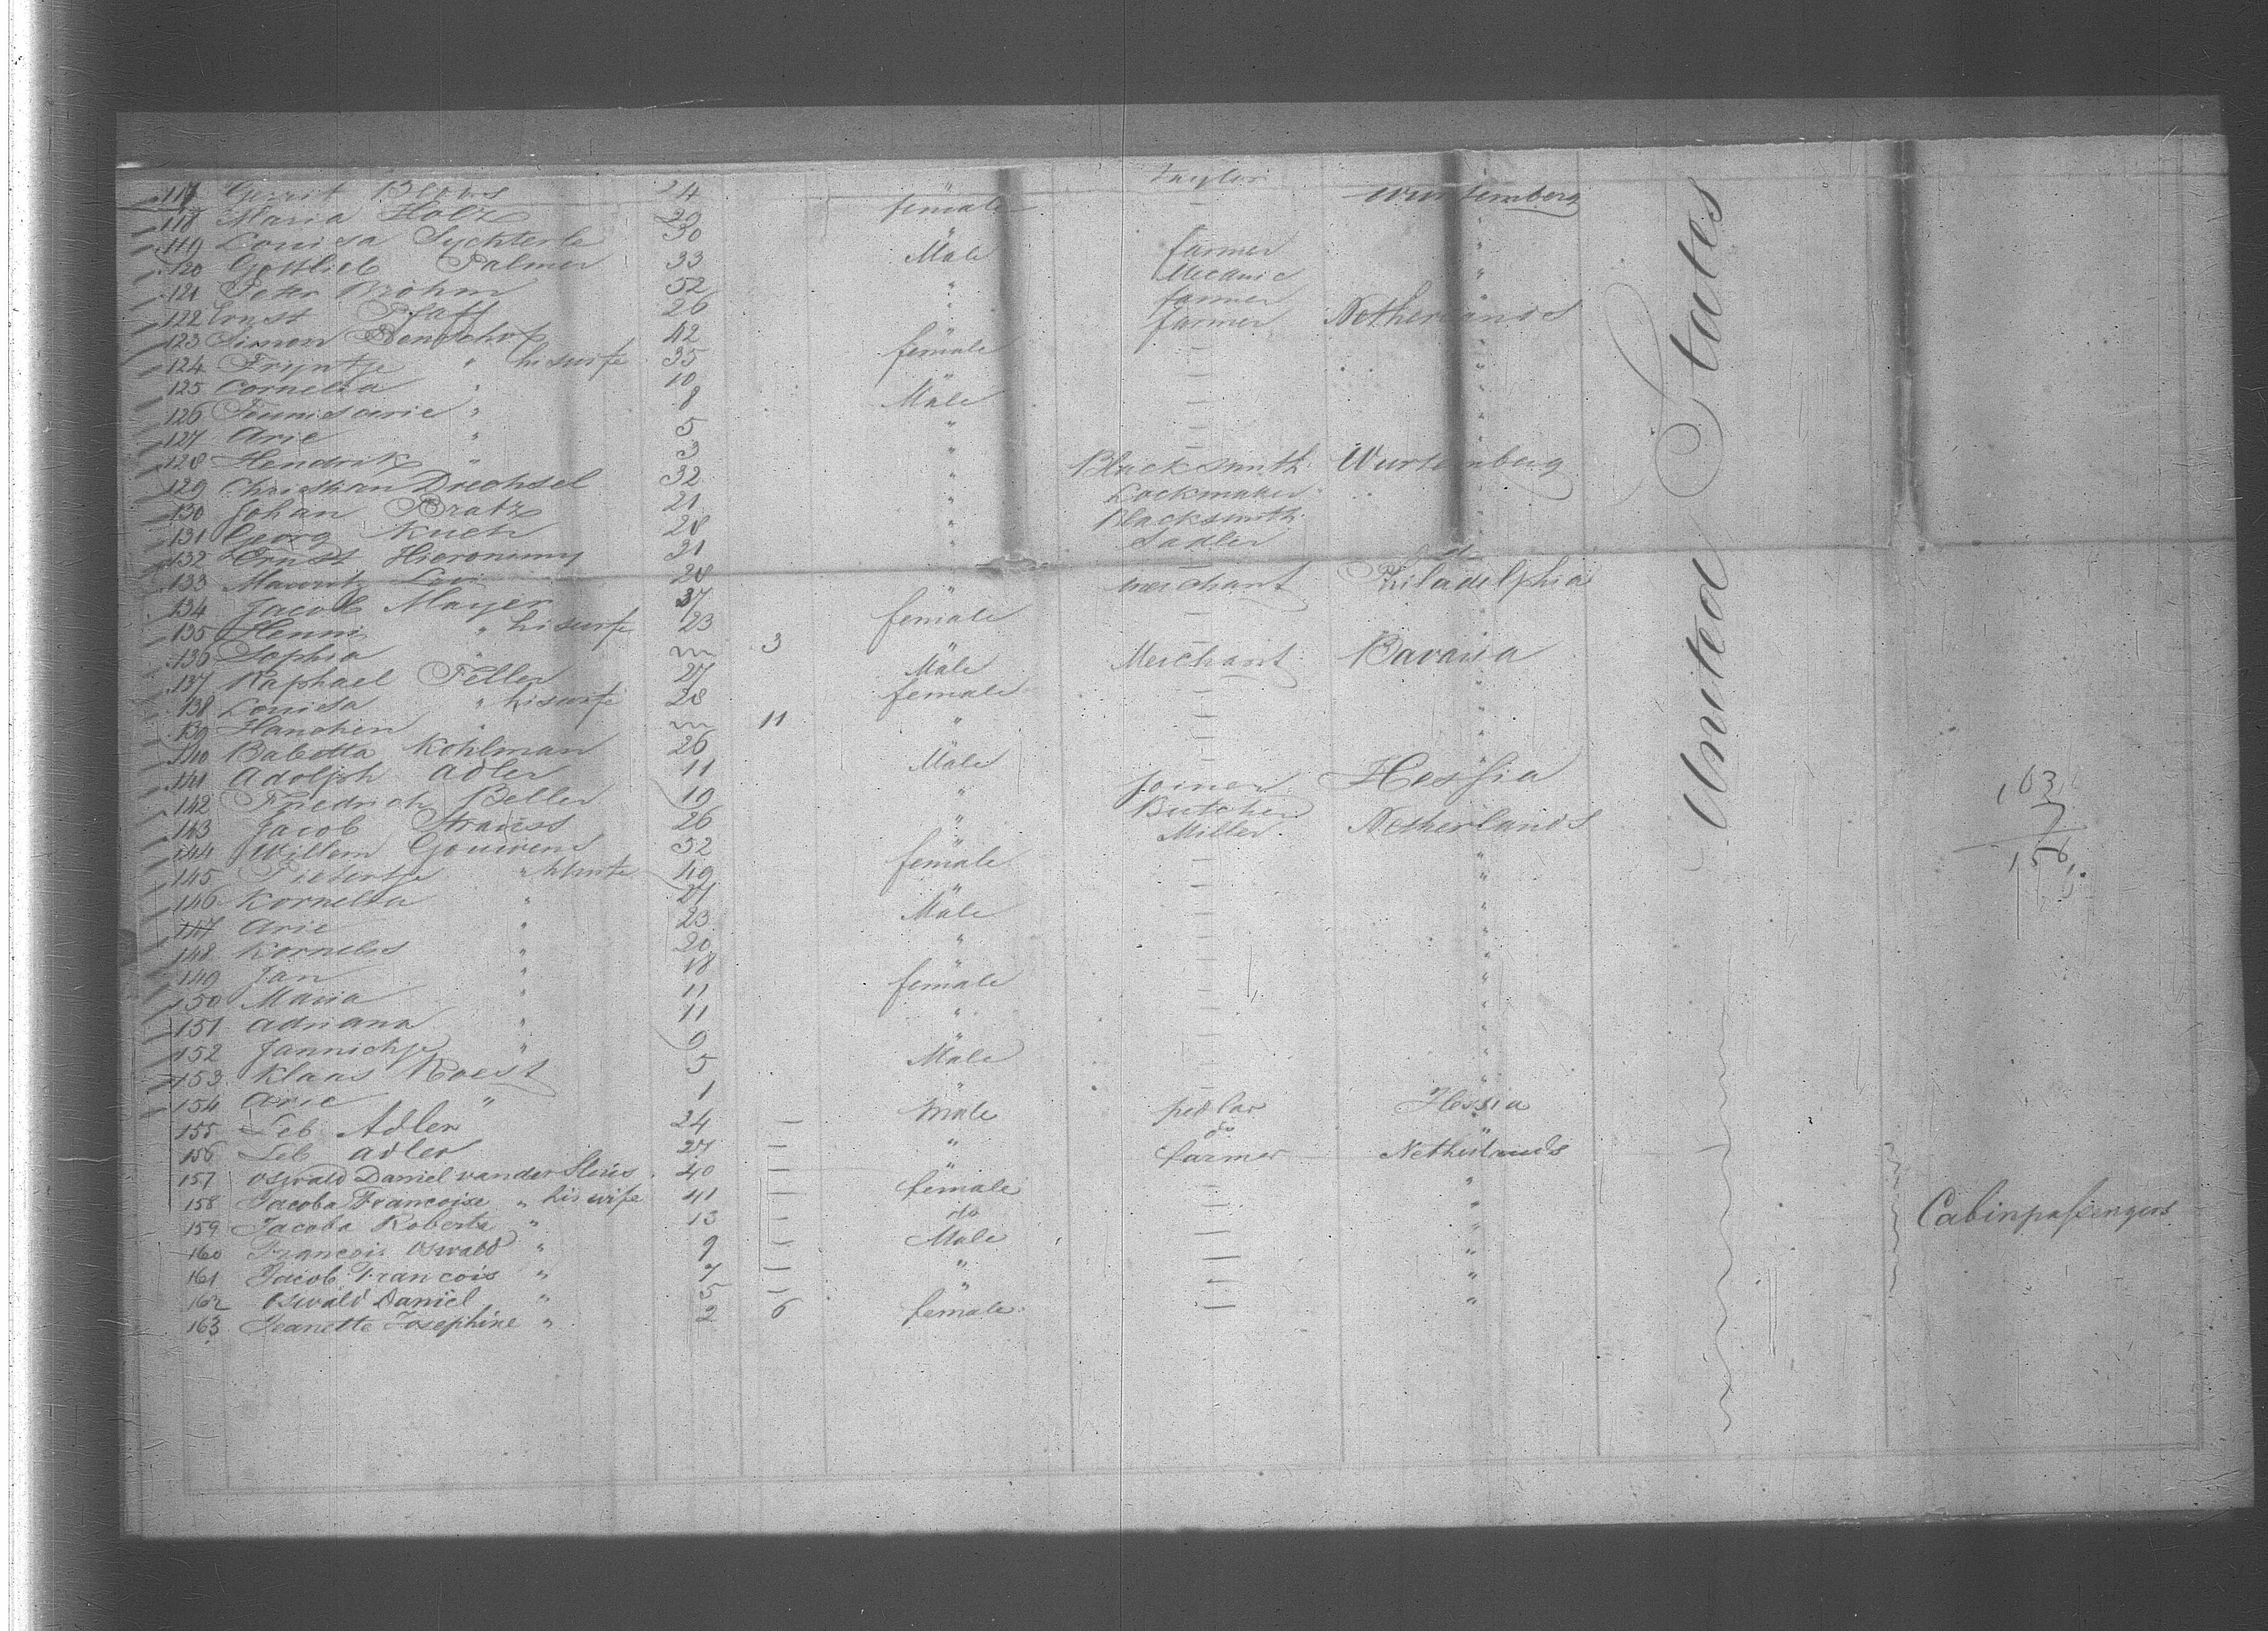 117 Gerrit Blows 24 Taylor
118 Maria Holz 29 female — Wurtemberg
119 Louisa Suchterle 30 " — "
120 Gottlieb Palmer 33 Male farmer "
121 Peter Bröhm 52 " Mecanic "
122 Ernst Pfaff 26 " farmer "
123 Simon 42 " farmer Netherlands
124 Tryntje " hiswife 35 female — "
125 Cornelia " 10 " — "
126 Teunisarie " 8 Male — "
127 Arie " 5 " — "
128 Hendrik " 3 " — "
129 Christian Drechsel 32 " Blacksmith Wurtemberg
130 Johan Bratz 21 " Lockmaker "
131 Georg Kuch 28 " Blacksmith "
132 Ernst Hieronimy 31 " Sadler "
133 Mauritz Levi 28
134 Jacob Mayer 37 " merchant Philadelphia
135 Henni " hiswife 23 female — "
136 Sophia " m 3 " —
137 Raphael Feller 27 Male Merchant Bavaria
138 Louisa " hiswife 28 female — "
139 Hanchen " m 11 " — "
140 Babetta Kohlman 26 " — "
141 Adolph Adler 11 Male — "
142 Friedrich Beller 19 " Joiner Hessia
143 Jacob Strauss 26 " Butcher
144 Willem Gouwens 52 " Miller Netherlands
145 Pietertje " hiswife 49 female — "
146 Kornelia " 24 " — "
147 Arie " 23 Male — "
148 Kornelis " 20 " — "
149 Jan " 18 " — "
150 Maria " 11 female — "
151 Adriana " 11 " — "
152 Jannichje " 9 " — "
153 Klaas Roest 5 Male — "
154 Arie " 1 " — "
155 Leb Adler 24 — male pedlar Hessia
156 Leb Adler 27 — " do "
157 Oswald Daniel van der Sluis 40 — " farmer Netherlands
158 Jacoba Francoise " his wife 41 — female — "
159 Jacoba Roberta " 13 — do — "
160 Francois Oswald " 9 — Male — "
161 Jacob Francois " 7 — " — "
162 Oswald Daniel " 5 — " — "
163 Jeanette Josephine " 2 6 female — "
United States
163
7
156
Cabinpassengers